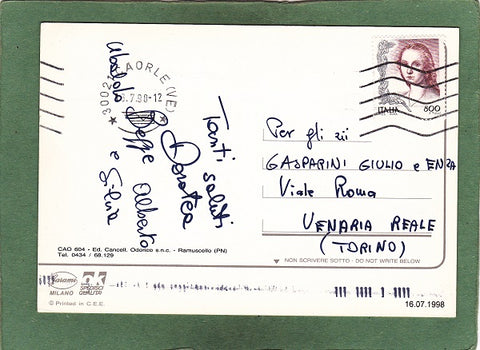 30021 CAORLE (VE)
.7.98-12
ITALIA
800
Tanti saluti
Dorotea
Beppe Alberto
e Silvia
Per gli zii
GASPARINI GIULIO e ENZA
Viale Roma
VENARIA REALE
(TORINO)
CAO 604 - Ed. Cancell. Odorico s.n.c. - Ramuscello (PN)
Tel. 0434 / 69.129
NON SCRIVERE SOTTO - DO NOT WRITE BELOW
MILANO
© Printed in C.E.E.
16.07.1998